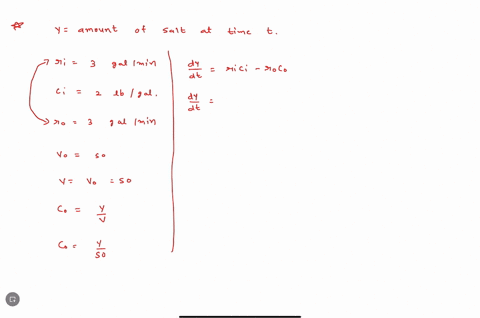 Y = amount of salt at time t.
ri = 3 gal/min
Ci = 2 lb/gal.
ro = 3 gal/min
Vo = 50
V = Vo = 50
Co = Y/V
Co = Y/50
dY/dt = riCi - roCo
dY/dt =